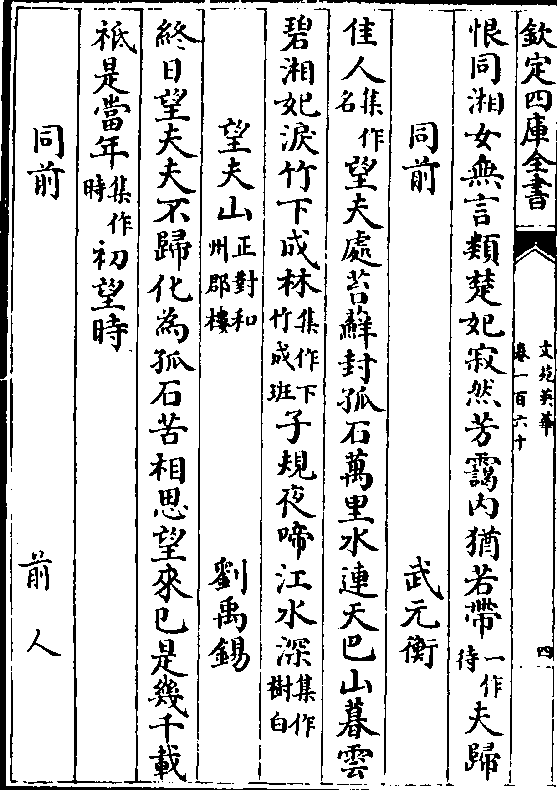 欽定四庫全書
文苑英華
卷一百六十
四
恨同湘女無言類楚妃寂然芳靄内猶若帶一作待夫歸
同前 武元衡
佳人集作名望夫處苔蘚封孤石萬里水連天巴山暮雲
碧湘妃淚竹下成林集作下竹成班子規夜啼江水深集作樹白
望夫山正對和州郡樓 劉禹錫
終日望夫夫不歸化為孤石苦相思望來已是幾千載
祗是當年集作時初望時
同前 前人